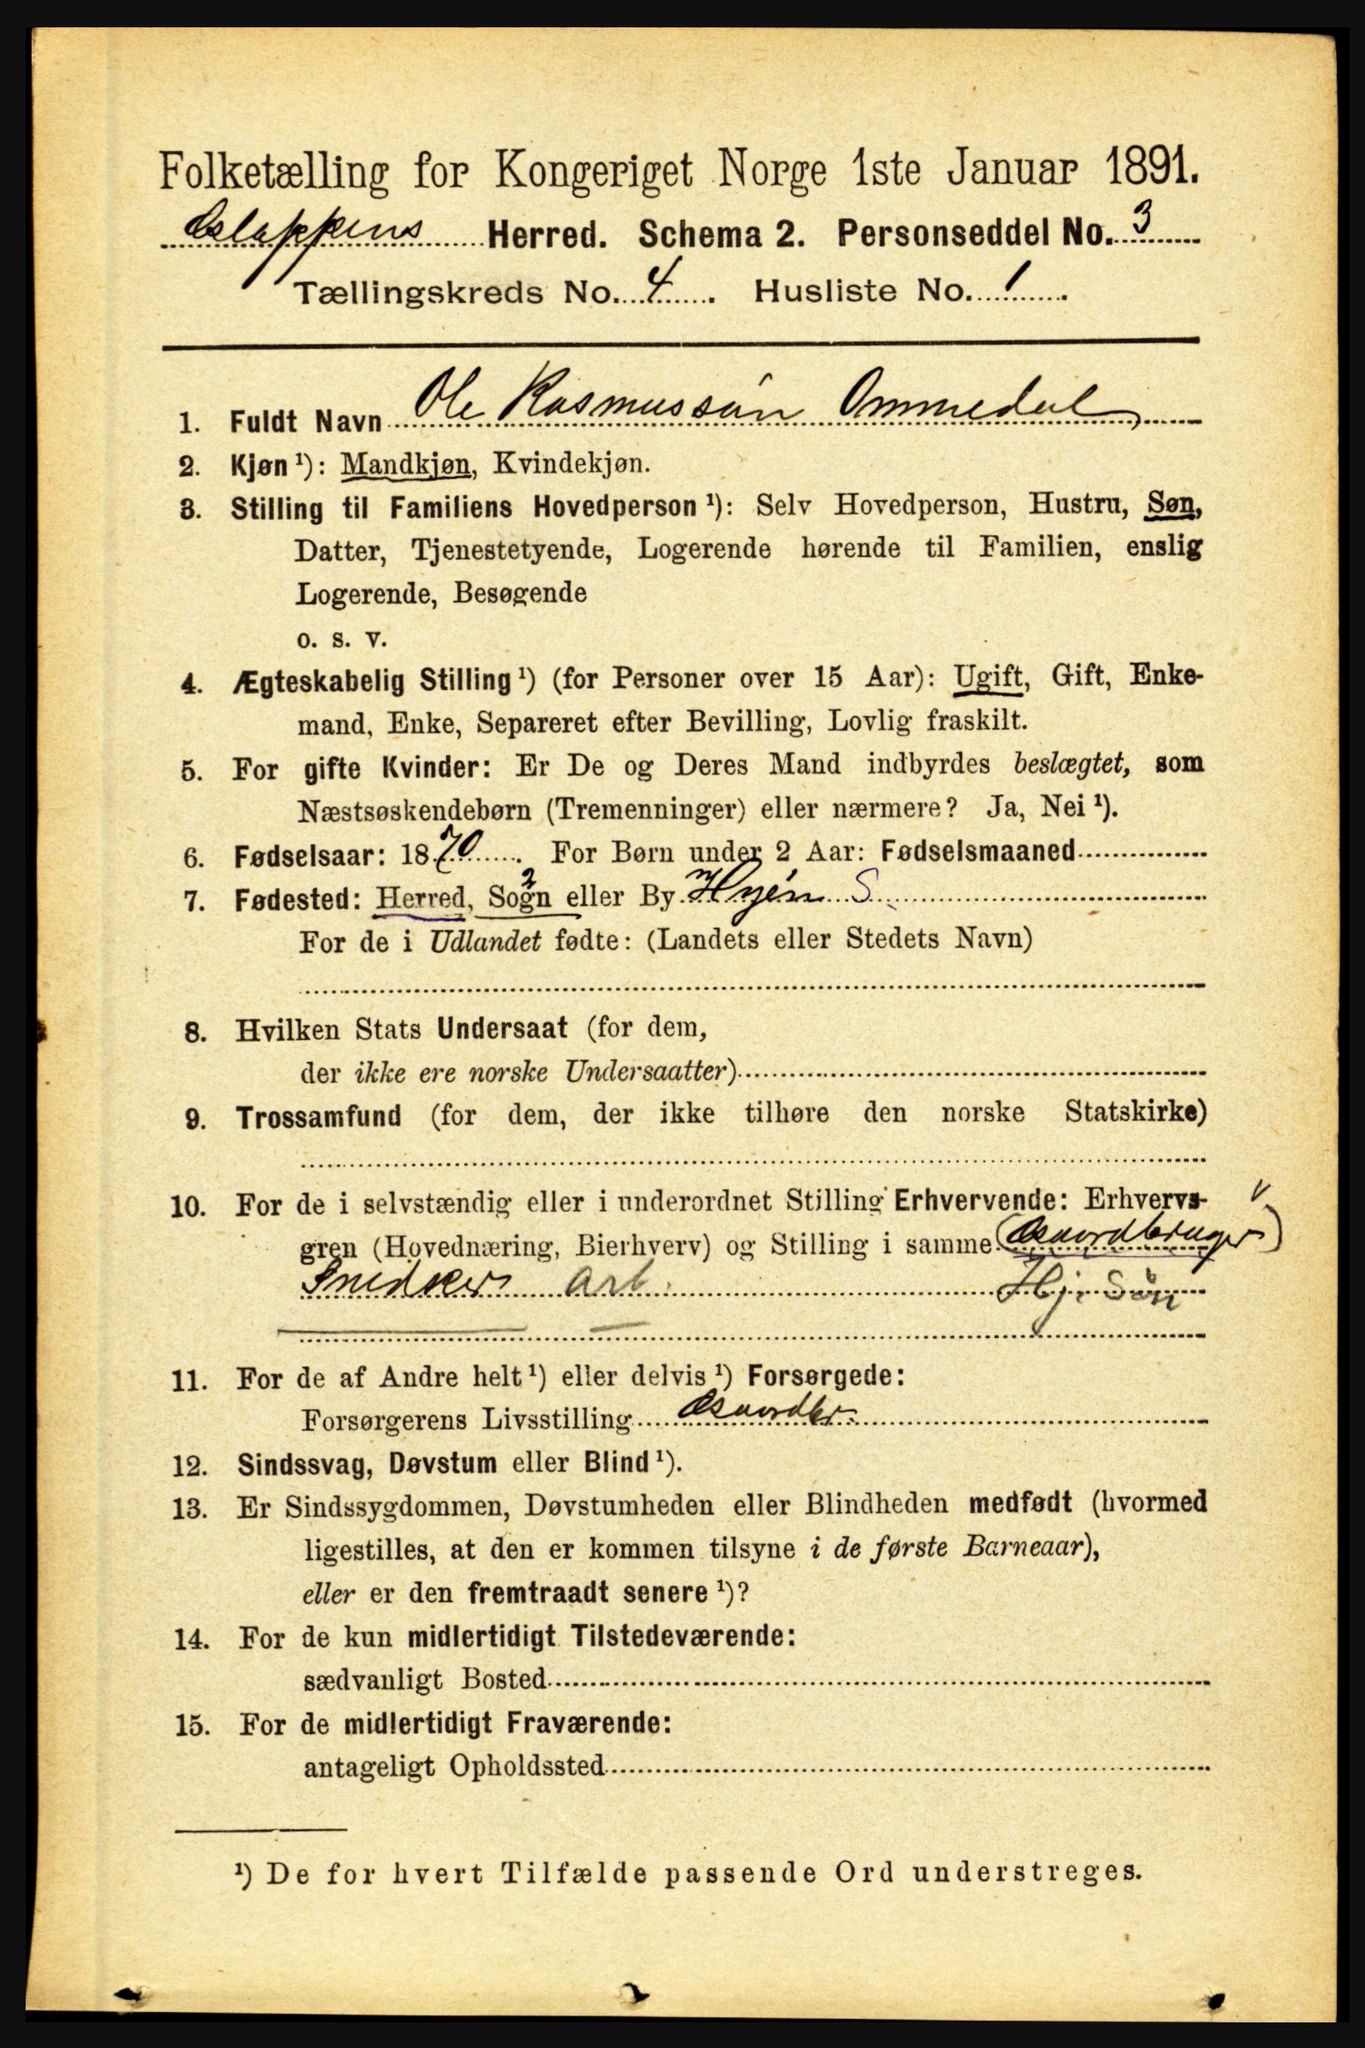 Folketælling for Kongeriget Norge 1ste Januar 1891.
Gloppens Herred. Schema 2. Personseddel No. 3
Tællingskreds No. 4. Husliste No. 1.
1. Fuldt Navn Ole Rasmussøn Ommedal
2. Kjøn ¹): Mandkjøn, Kvindekjøn.
3. Stilling til Familiens Hovedperson ¹): Selv Hovedperson, Hustru, Søn,
Datter, Tjenestetyende, Logerende hørende til Familien, enslig
Logerende, Besøgende
o. s. v.
4. Ægteskabelig Stilling ¹) (for Personer over 15 Aar): Ugift, Gift, Enke-
mand, Enke, Separeret efter Bevilling, Lovlig fraskilt.
5. For gifte Kvinder: Er De og Deres Mand indbyrdes beslægtet, som
Næstsøskendebørn (Tremenninger) eller nærmere? Ja, Nei ¹).
6. Fødselsaar: 1870. For Børn under 2 Aar: Fødselsmaaned
7. Fødested: Herred, Sogn eller By Hyen S.
For de i Udlandet fødte: (Landets eller Stedets Navn)
8. Hvilken Stats Undersaat (for dem,
der ikke ere norske Undersaatter)
9. Trossamfund (for dem, der ikke tilhøre den norske Statskirke)
10. For de i selvstændig eller i underordnet Stilling Erhvervende: Erhvervs-
gren (Hovednæring, Bierhverv) og Stilling i samme (Gaardbruger)
Snidker arb. Hj. Søn
11. For de af Andre helt ¹) eller delvis ¹) Forsørgede:
Forsørgerens Livsstilling Gaardbr.
12. Sindssvag, Døvstum eller Blind ¹).
13. Er Sindssygdommen, Døvstumheden eller Blindheden medfødt (hvormed
ligestilles, at den er kommen tilsyne i de første Barneaar),
eller er den fremtraadt senere ¹)?
14. For de kun midlertidigt Tilstedeværende:
sædvanligt Bosted
15. For de midlertidigt Fraværende:
antageligt Opholdssted
¹) De for hvert Tilfælde passende Ord understreges.